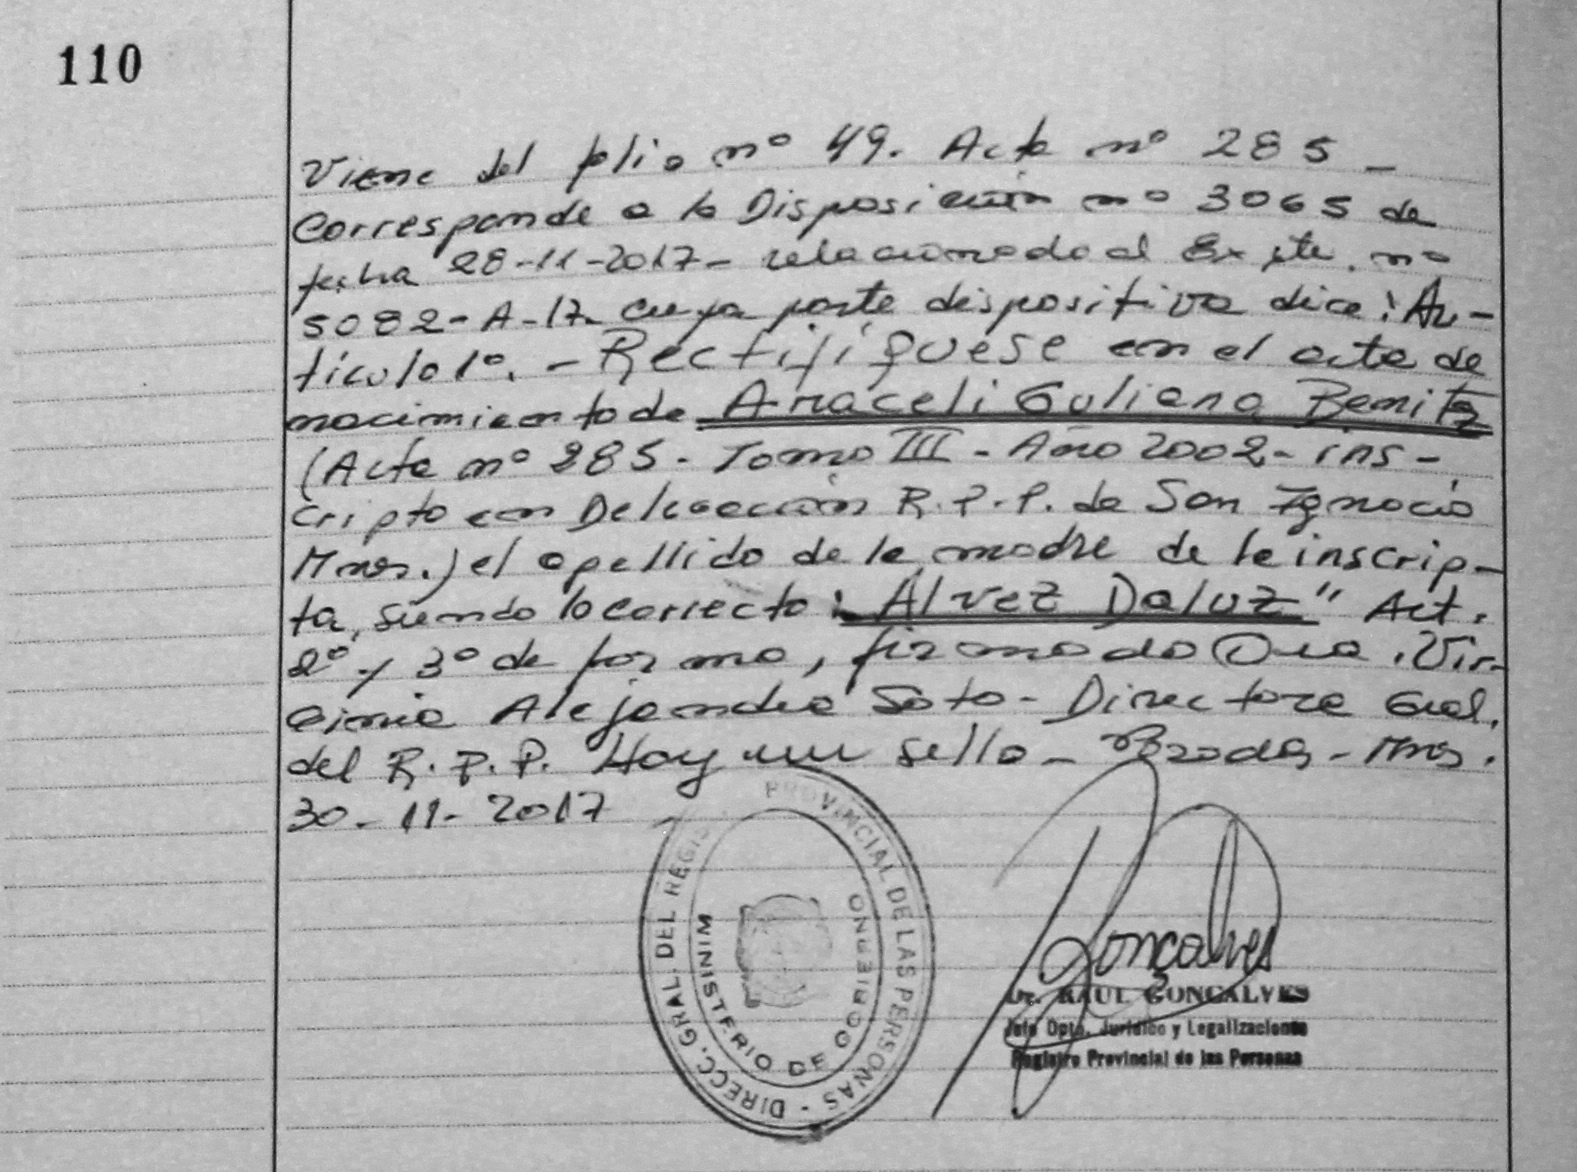 110
Viene del folio nº 49. Acta nº 285 -
Corresponde a la Disposición nº 3065 de
fecha 28-11-2017- relacionado al Expte. nº
5082-A-17- cuya parte dispositiva dice: Ar-
tículo 1º. - Rectifíquese en el acta de
nacimiento de Araceli Guliana Benitez
(Acta nº 285- Tomo III - Año 2002- ins-
cripto en Delegación R.P.P. de San Ignacio
Mnes.) el apellido de la madre de la inscrip-
ta, siendo lo correcto: Alvez Daluz" Art.
2º y 3º de forma, firmado Dra. Vir-
ginia Alejandra Soto - Directora Gral.
del R.P.P. Hay un sello - Posadas - Mnes.
30-11-2017
DIRECC. GRAL. DEL REGIS PROVINCIAL DE LAS PERSONAS -
MINISTERIO DE GOBIERNO
Gonçalves
Dr. RAUL GONCALVES
Jefe Dpto. Jurídico y Legalizaciones
Registro Provincial de las Personas